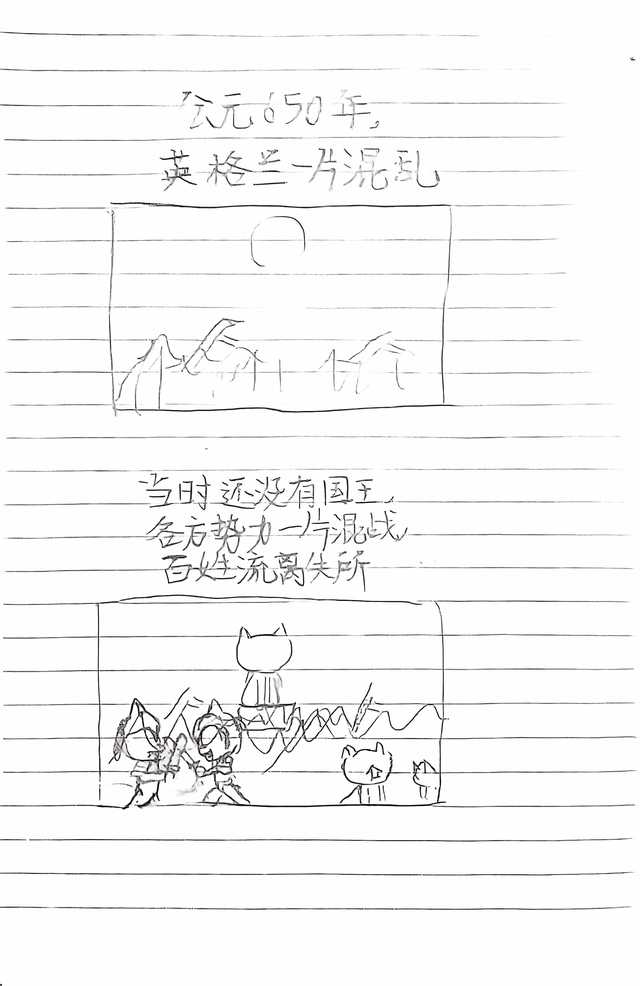 公元650年,
英格兰一片混乱
当时还没有国王,
各方势力一片混战,
百姓流离失所